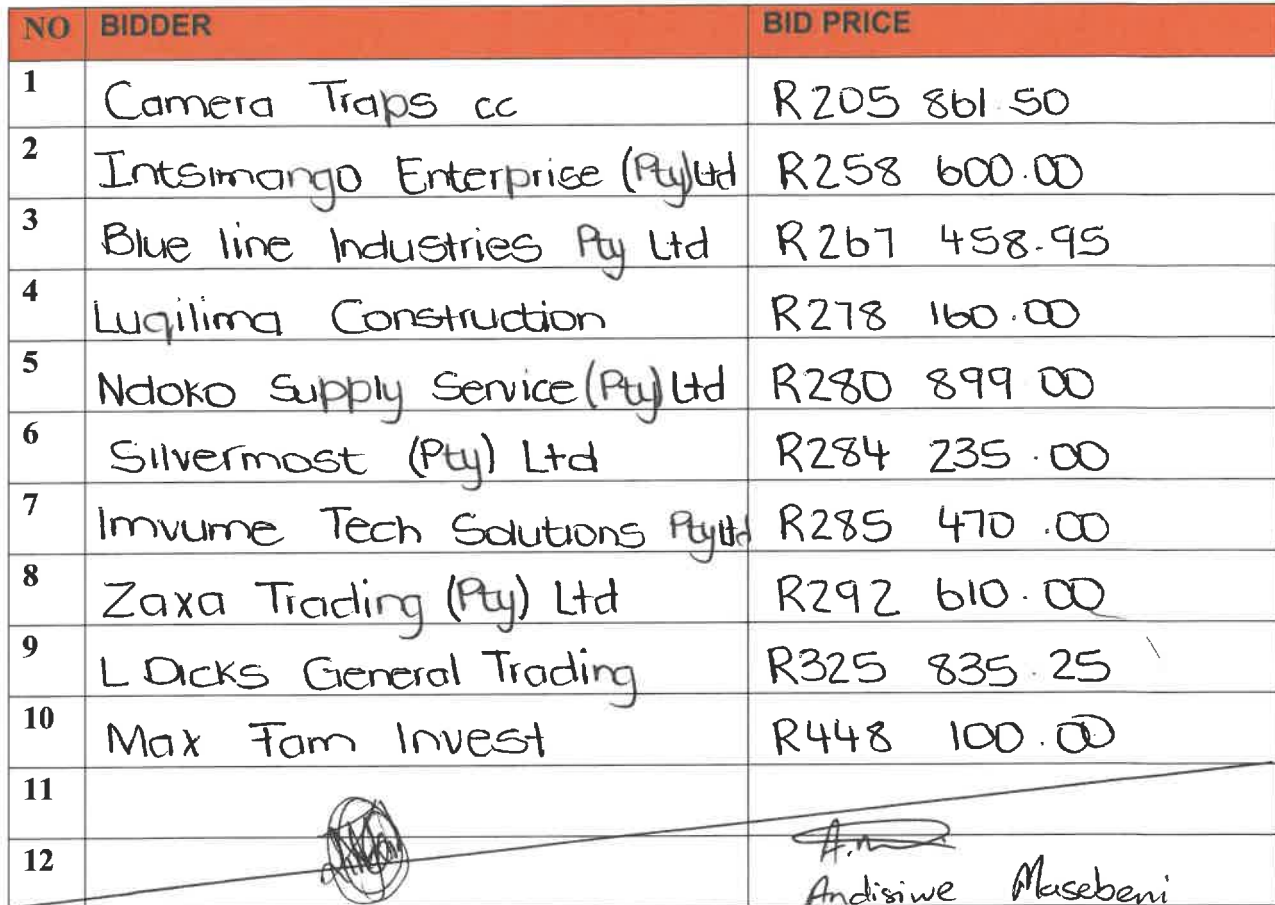 NO BIDDER BID PRICE
1 Camera Traps cc R205 861.50
2 Intsimango Enterprise (Pty) Ltd R258 600.00
3 Blue line Industries Pty Ltd R267 458.95
4 Luqilima Construction R278 160.00
5 Ndoko Supply Service (Pty) Ltd R280 899 00
6 Silvermost (Pty) Ltd R284 235.00
7 Imvume Tech Solutions Pty Ltd R285 470.00
8 Zaxa Trading (Pty) Ltd R292 610.00
9 L Dicks General Trading R325 835.25
10 Max Fam Invest R448 100.00
11
12
Andisiwe Masebeni